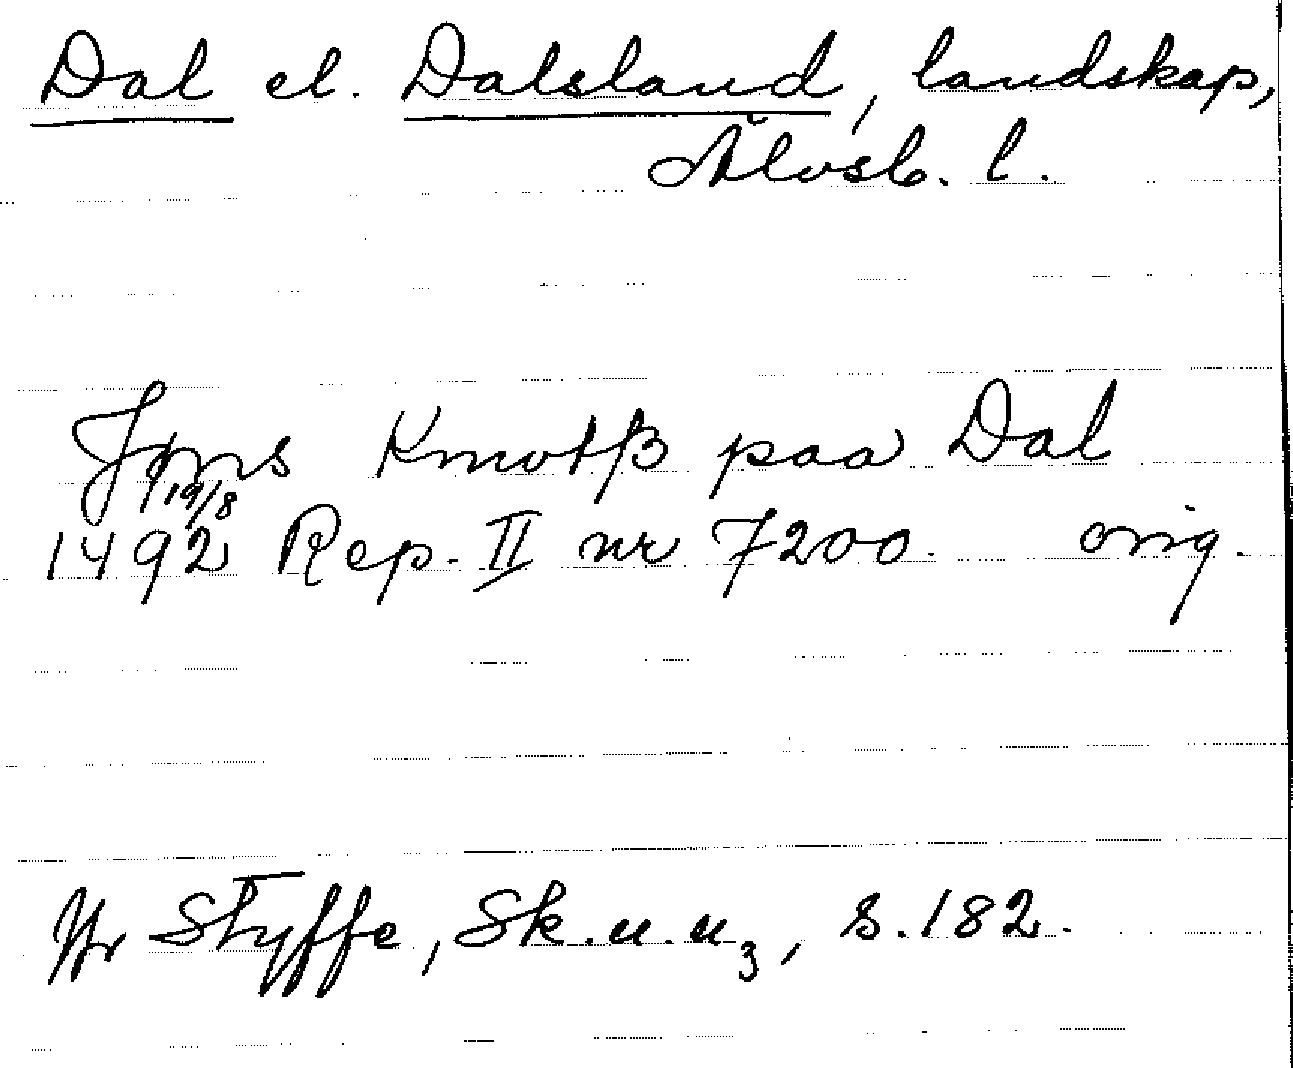 Dal el. Dalsland, landskap,
Älvsb. l.
Jöns Knotß paa Dal
19/8
1492 Rep. II nr 7200. orig.
Jfr Styffe, Sk. u. u₃, s. 182.